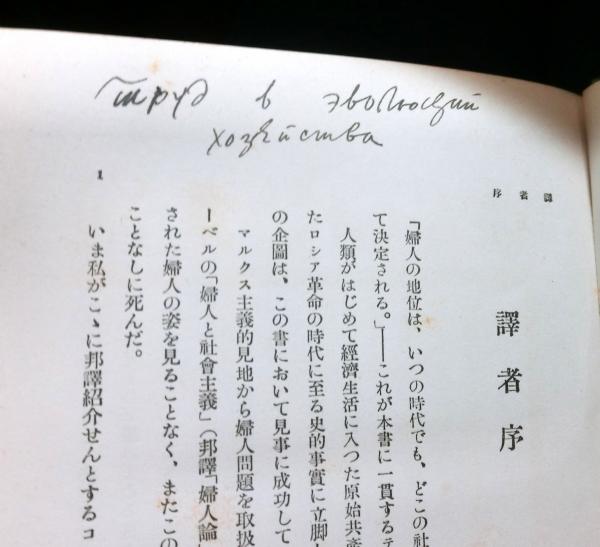 труд в эволюции
хозяйства
譯者序
譯者序
「婦人の地位は、いつの時代でも、どこの社
て決定される。」――これが本書に一貫するテ
人類がはじめて經濟生活に入つた原始共産
たロシア革命の時代に至る史的事實に立脚し
の企圖は、この書において見事に成功して
マルクス主義的見地から婦人問題を取扱
ーベルの「婦人と社會主義」（邦譯「婦人論」
された婦人の姿を見ることなく、またこの
ことなしに死んだ。
いま私がこゝに邦譯紹介せんとするコ
1